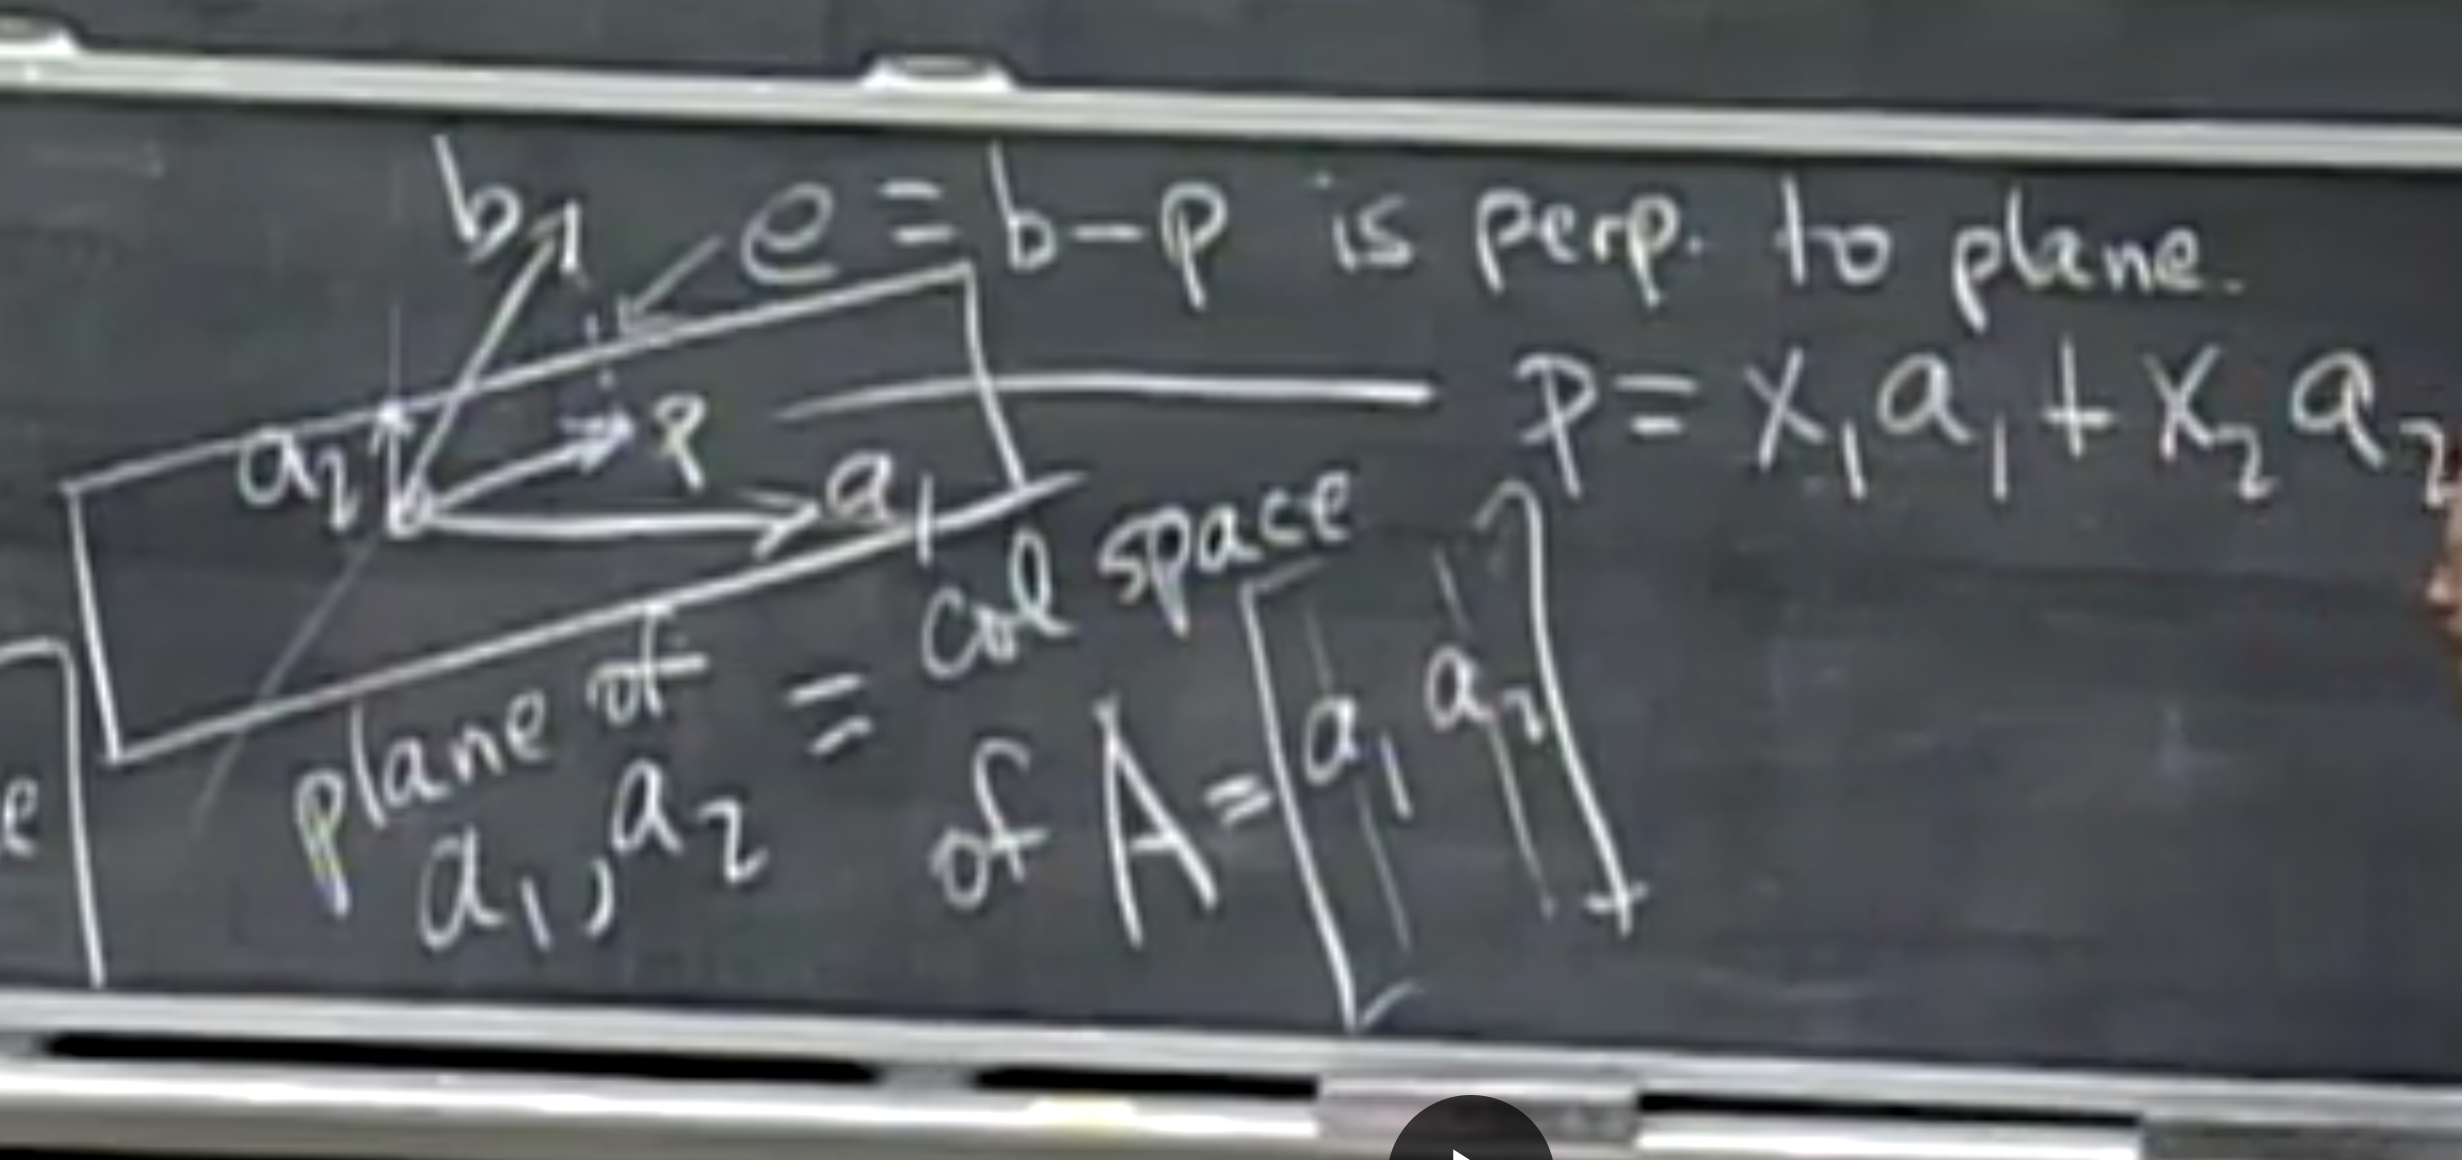 b e = b - p is perp. to plane.
a₂ p a₁ p = x₁a₁ + x₂a₂
plane of a₁, a₂ = col space of A = [a₁ a₂]
e